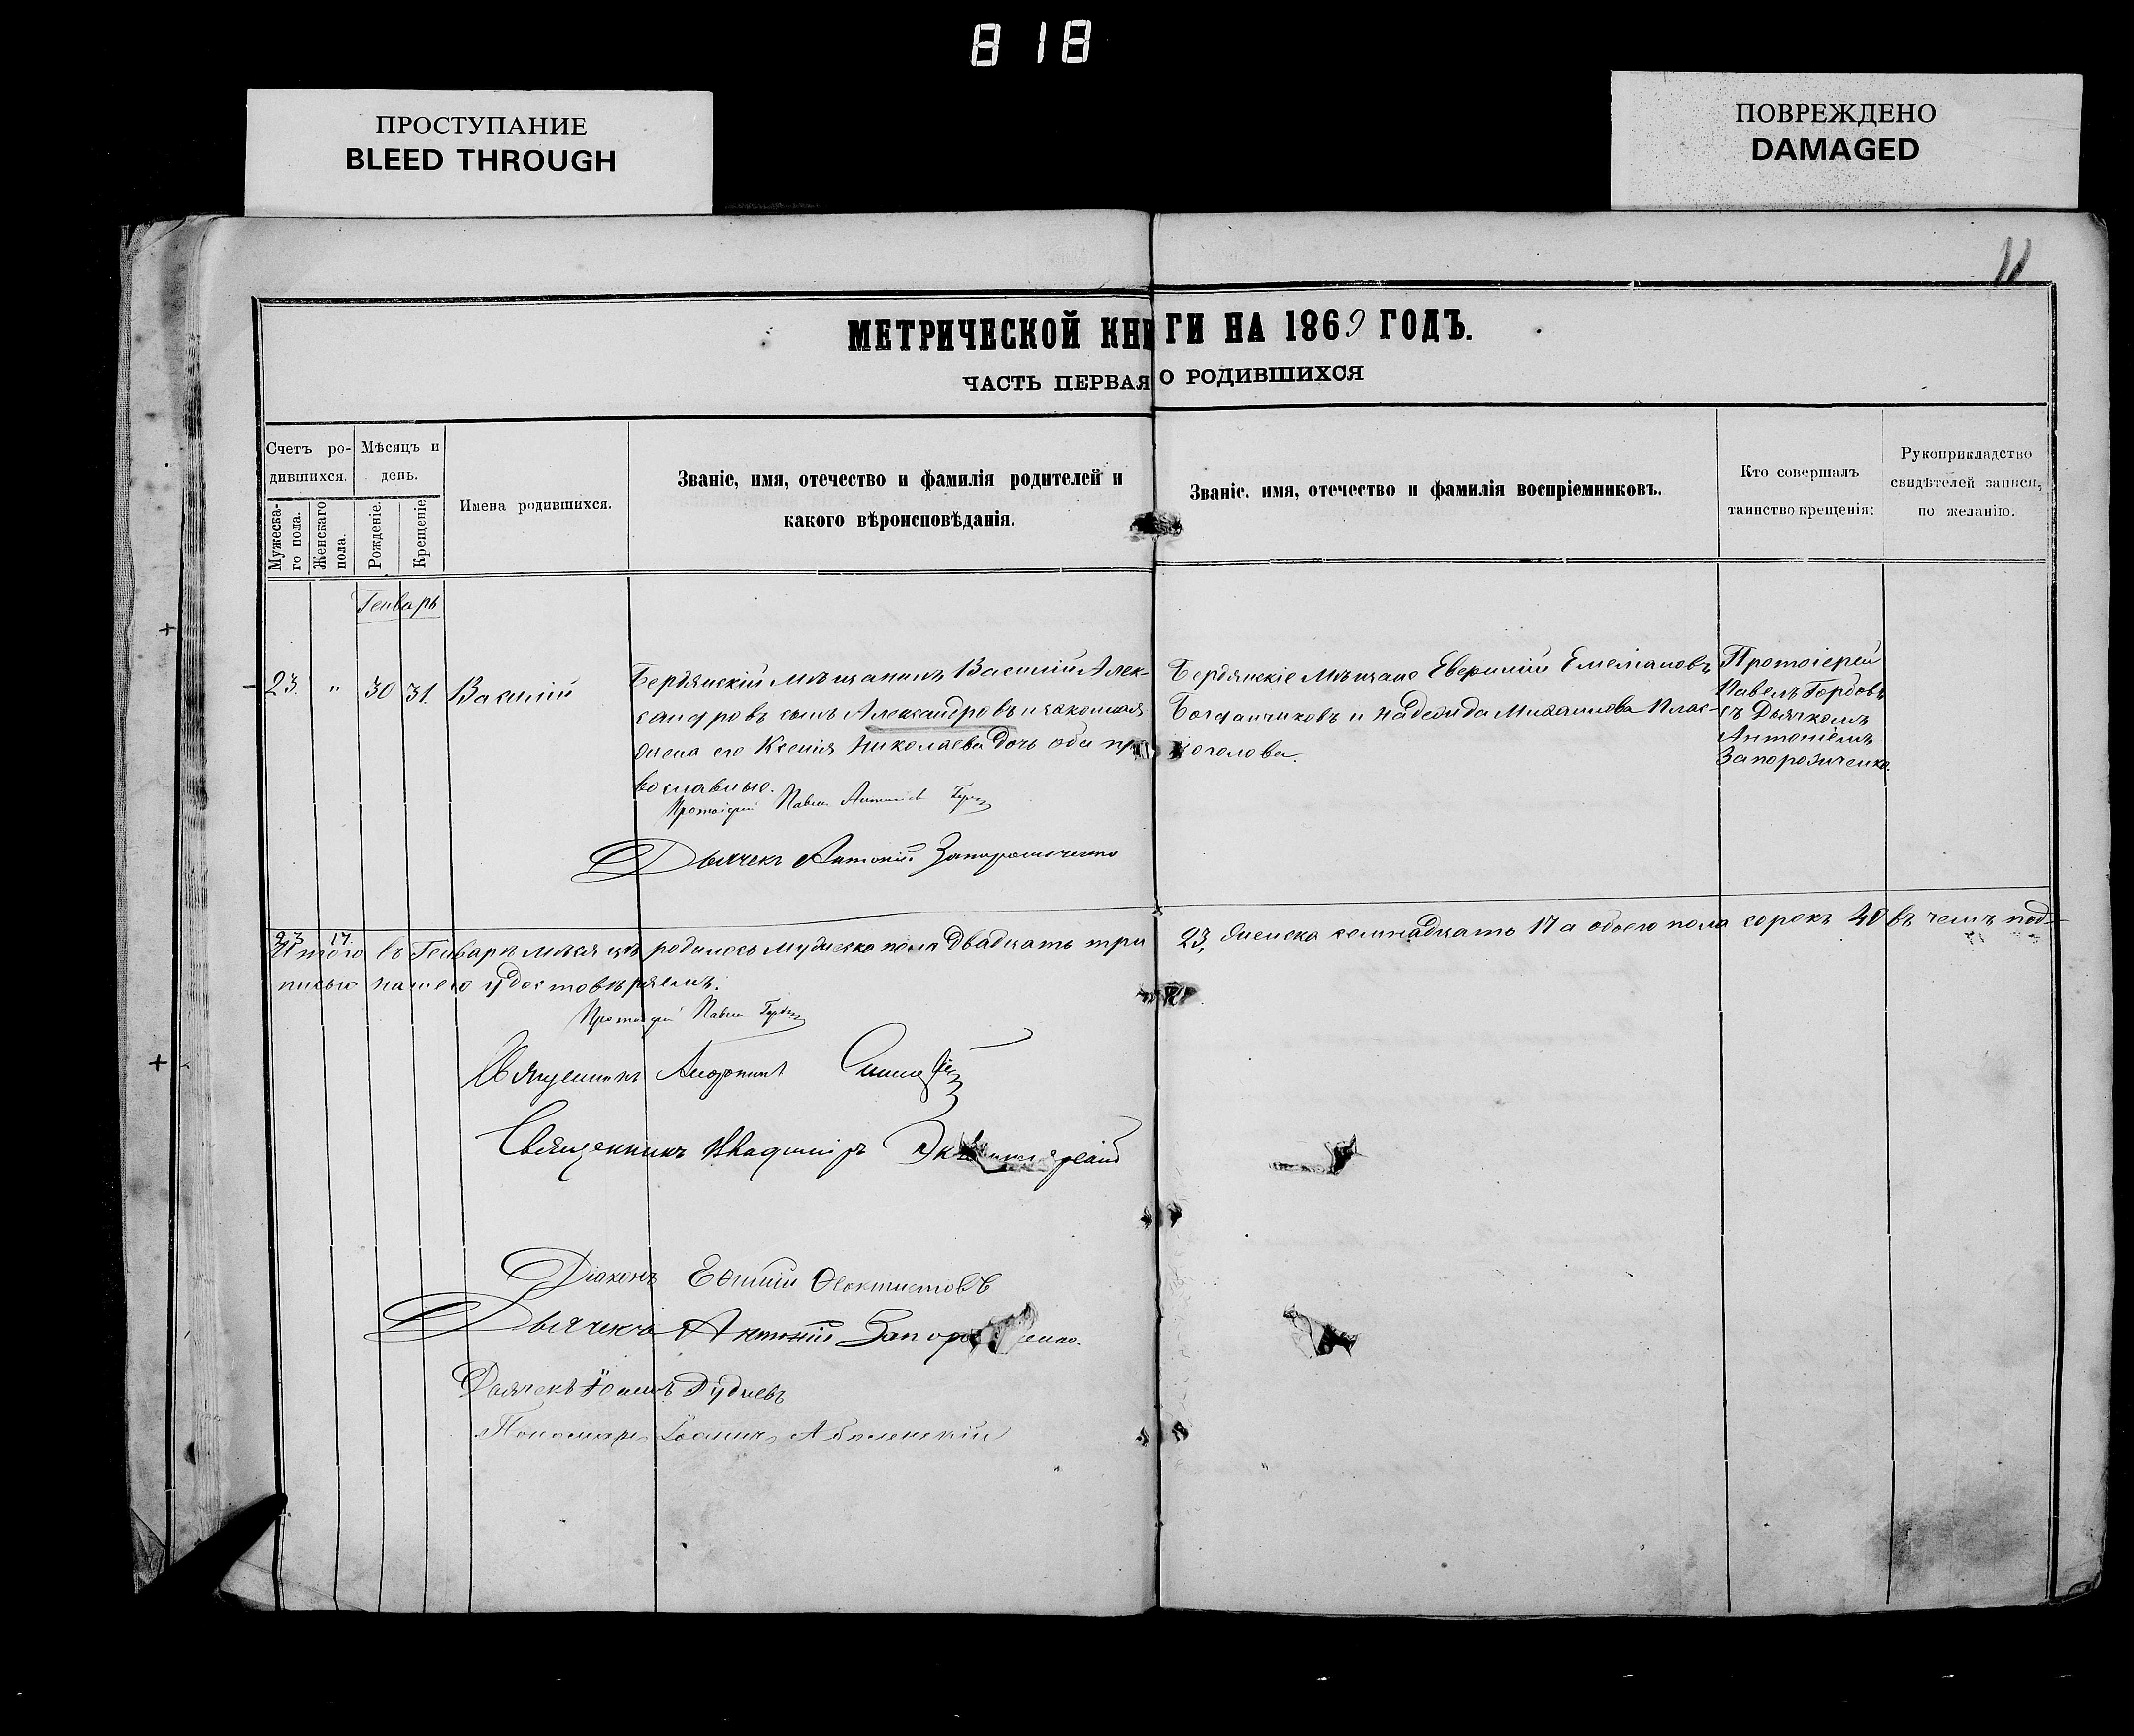 818
ПРОСТУПАНИЕ
BLEED THROUGH
ПОВРЕЖДЕНО
DAMAGED
11
МЕТРИЧЕСКОЙ КНИГИ НА 1869 ГОДЪ.
ЧАСТЬ ПЕРВАЯ О РОДИВШИХСЯ
Счетъ ро-
дившихся.
Мужеска-
го пола.
Женскаго
пола.
Мѣсяцъ и
день.
Рожденіе.
Крещеніе.
Имена родившихся.
Званіе, имя, отечество и фамилія родителей и
какого вѣроисповѣданія.
Званіе, имя, отечество и фамилія воспріемниковъ.
Кто совершалъ
таинство крещенія:
Рукоприкладство
свидѣтелей записи,
по желанію.
Генварь
23. " 30 31. Василій
Бердянскій мѣщанинъ Василій Алек-
сандровъ сынъ Александровъ и законная
жена его Ксенія Николаева дочь оба пра
вославные.
Бердянскіе мѣщане Емеліановъ
и Надежда Михаилова Плос-
коголова.
Протоіерей
Павелъ Горбовъ
съ Дьячкомъ
Антоніемъ
Запорожченко.
Протоіерей Павелъ
Дьячекъ Антоній Запорожченко
23 17
Итого въ Генварѣ мѣсяцѣ родилось мужеска пола двадцать три 23, женска семнадцать 17 а обоего пола сорокъ 40 въ чемъ под-
писью нашею удостовѣряемъ.
Протоіерей Павелъ
Священникъ
Священникъ Владиміръ
Діаконъ Еѳимій Ѳеоктистовъ
Дьячекъ Антоній Запорожченко.
Дьячекъ Дудневъ
Пономарь Іоаннъ